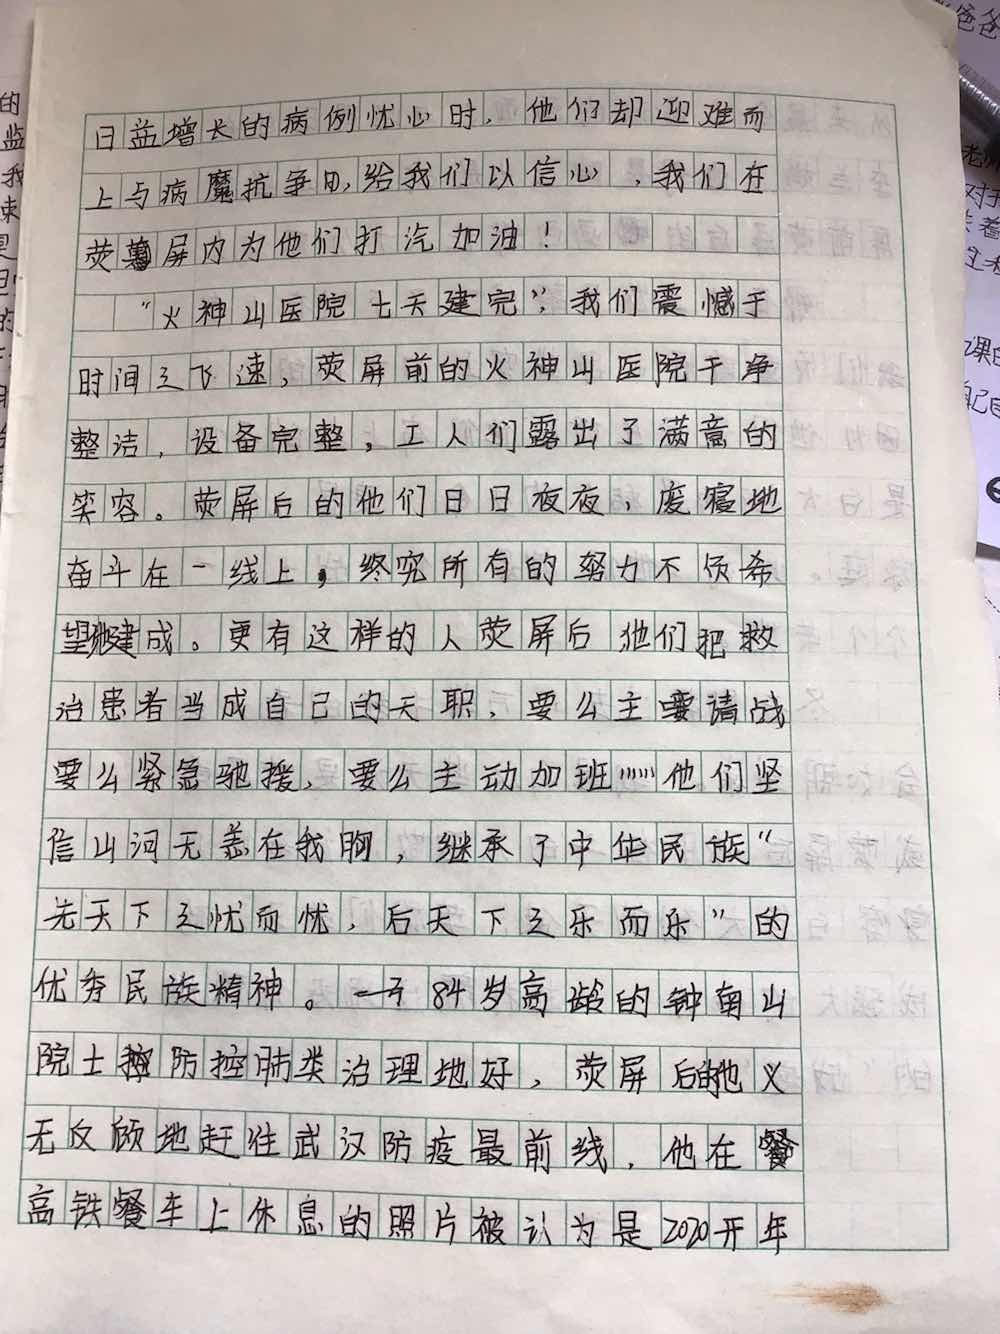 日益增长的病例忧心时，他们却迎难而
上与病魔抗争，给我们以信心，我们在
荧屏内为他们打汽加油！
“火神山医院七天建完”，我们震憾于
时间之飞速，荧屏前的火神山医院干净
整洁，设备完整，工人们露出了满意的
笑容。荧屏后的他们日日夜夜，废寝地
奋斗在一线上，终究所有的努力不负希
望建成。更有这样的人荧屏后他们把救
治患者当成自己的天职，要么主要请战
要么紧急驰援，要么主动加班……他们坚
信山河无恙在我胸，继承了中华民族“
先天下之忧而忧，后天下之乐而乐”的
优秀民族精神。84岁高龄的钟南山
院士防控肺类治理地好，荧屏后的他义
无反顾地赶往武汉防疫最前线，他在
高铁餐车上休息的照片被认为是2020开年